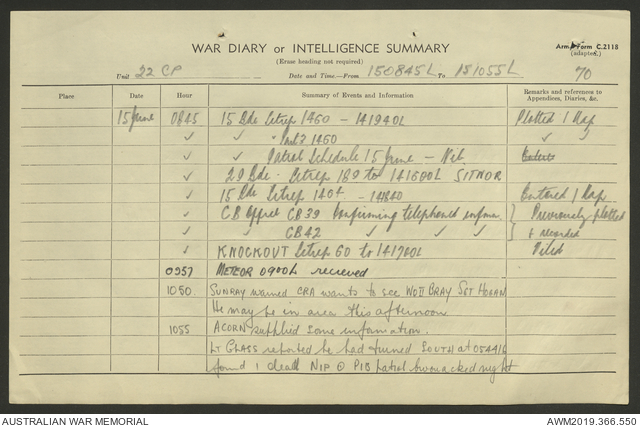 WAR DIARY or INTELLIGENCE SUMMARY
(Erase heading not required)
Army Form C.2118
(adapted).
Unit 22 CP Date and Time.—From 150845L To 151055L 70
Place Date Hour Summary of Events and Information Remarks and references to Appendices, Diaries, &c.
15 June 0845 15 Bde Sitrep 1460 - 141940L Plotted 1 Map
✓ ✓ " Part 2 1460 ✓ ✓
✓ ✓ Patrol Schedule 15 June - Nil.
✓ 29 Bde. Sitrep 189 to 141600L SITNOR
✓ 15 Bde Sitrep Entered 1 Map
✓ CB Offret CB39 Confirming telephoned informa. } Previously plotted
✓ ✓ CB42 ✓ ✓ ✓ } & recorded
✓ KNOCKOUT Sitrep 60 to 141700L Filed
0957 METEOR 0900L recieved
1050. SUNRAY warned CRA wants to see WOII BRAY SGT HOGAN
He may be in area this afternoon
1055 ACORN supplied some information.
LT GLASS reported he had turned SOUTH at 054416
found 1 dead NIP PIB patrol bivouacked night
AUSTRALIAN WAR MEMORIAL
AWM2019.366.550